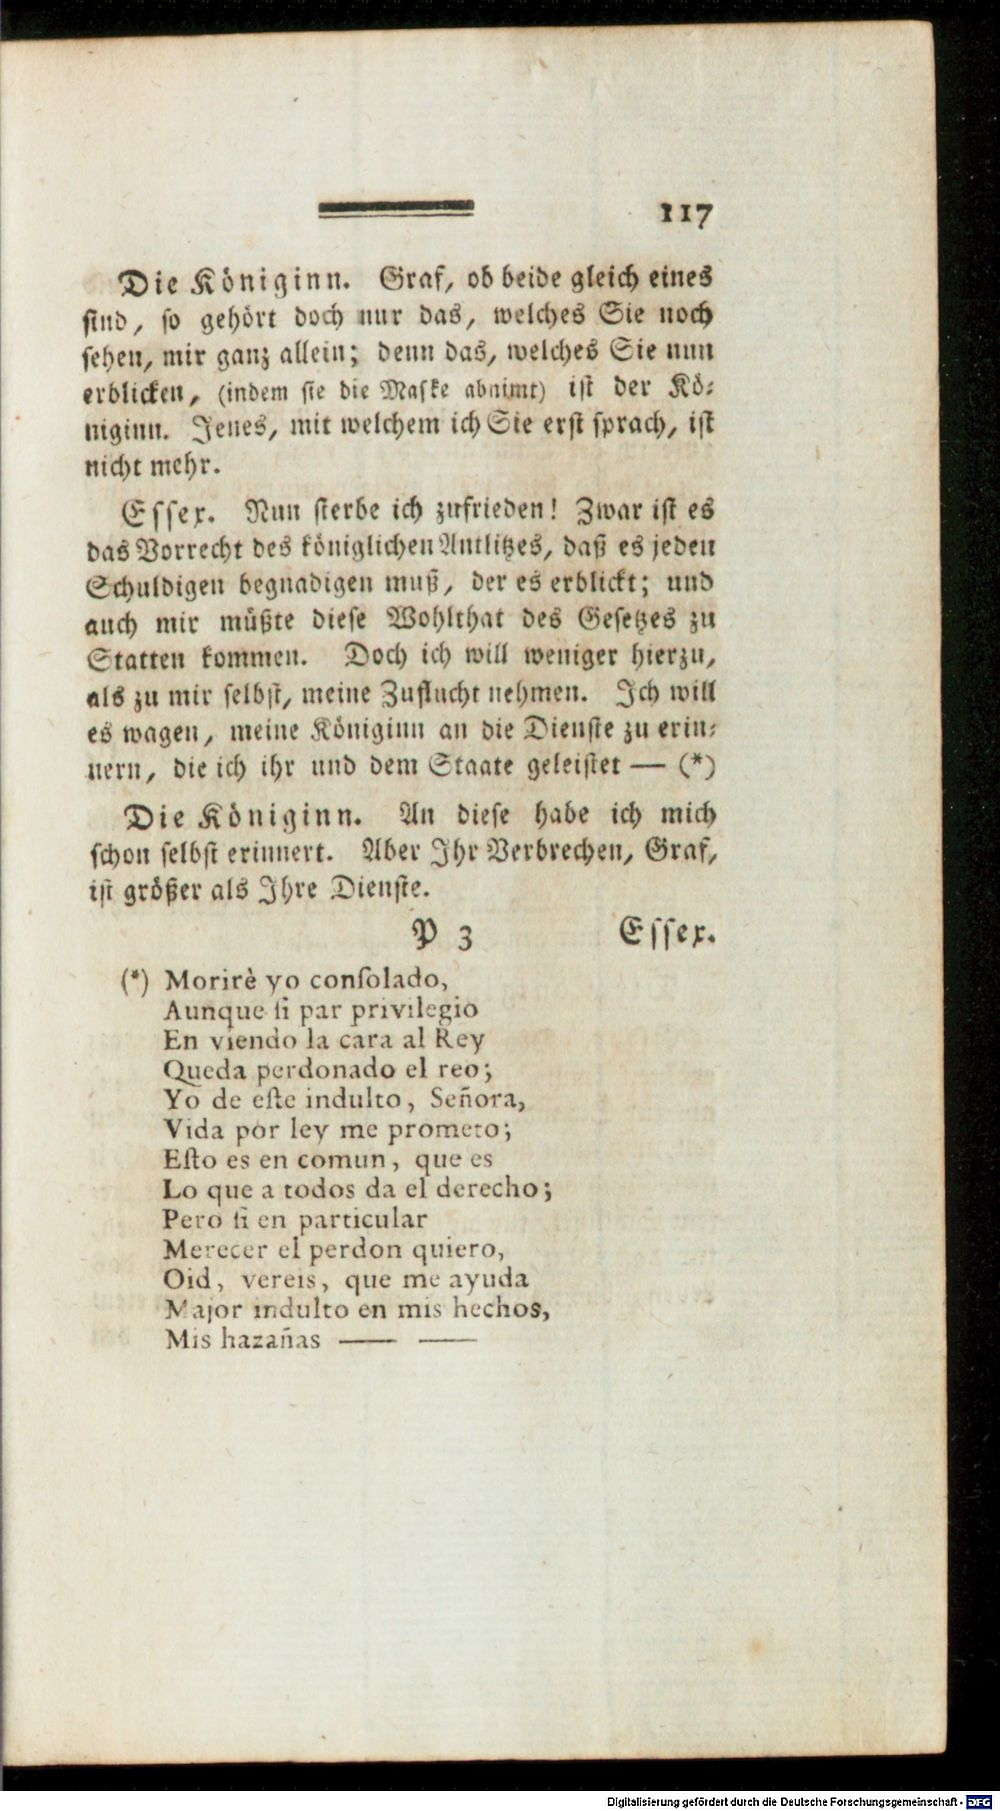 117
Die Königinn. Graf, ob beide gleich eines
sind, so gehört doch nur das, welches Sie noch
sehen, mir ganz allein; denn das, welches Sie nun
erblicken, (indem sie die Maske abnimt) ist der Kö⸗
niginn. Jenes, mit welchem ich Sie erst sprach, ist
nicht mehr.
Essex. Nun sterbe ich zufrieden! Zwar ist es
das Vorrecht des königlichen Antlitzes, daß es jeden
Schuldigen begnadigen muß, der es erblickt; und
auch mir müßte diese Wohlthat des Gesetzes zu
Statten kommen. Doch ich will weniger hierzu,
als zu mir selbst, meine Zuflucht nehmen. Ich will
es wagen, meine Königinn an die Dienste zu erin⸗
nern, die ich ihr und dem Staate geleistet — (*)
Die Königinn. An diese habe ich mich
schon selbst erinnert. Aber Ihr Verbrechen, Graf,
ist größer als Ihre Dienste.
P 3 Essex.
(*) Morirè yo conſolado,
Aunque ſi par privilegio
En viendo la cara al Rey
Queda perdonado el reo;
Yo de eſte indulto, Señora,
Vida por ley me prometo;
Eſto es en comun, que es
Lo que a todos da el derecho;
Pero ſi en particular
Merecer el perdon quiero,
Oid, vereis, que me ayuda
Major indulto en mis hechos,
Mis hazañas — —
Digitalisierung gefördert durch die Deutsche Forschungsgemeinschaft - DFG